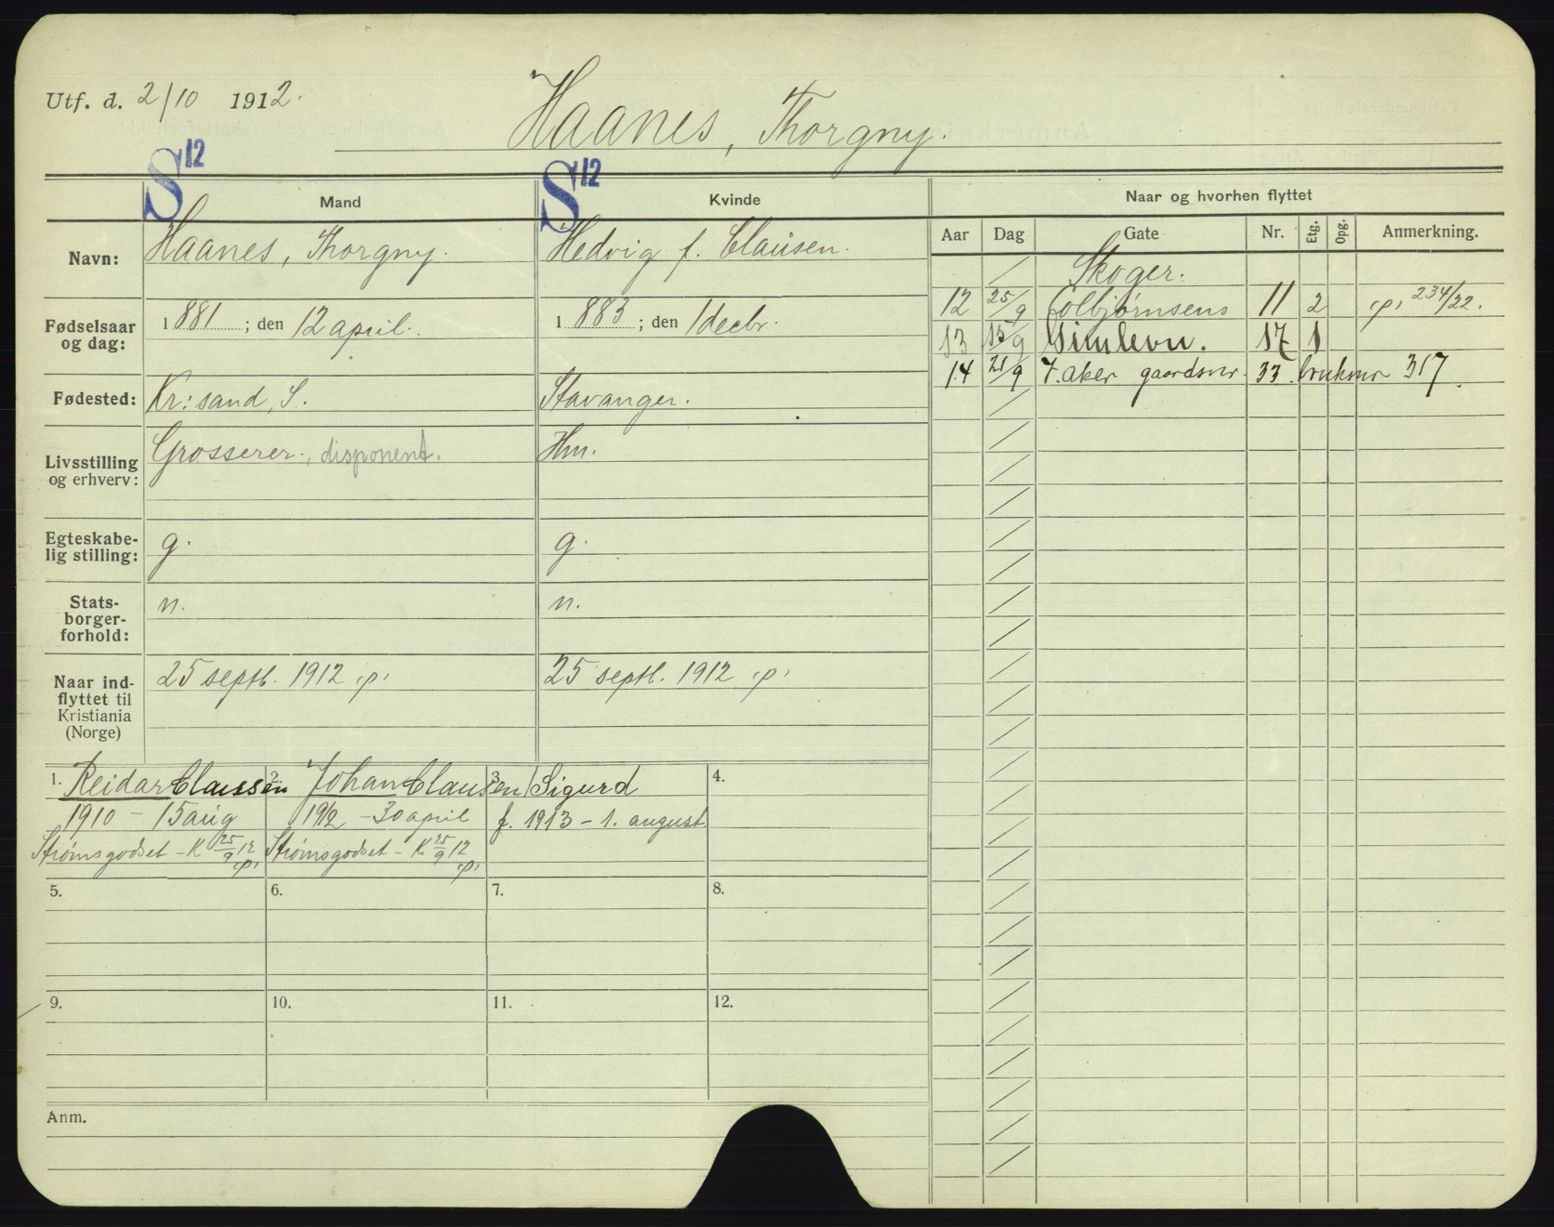 Utf. d. 2/10 1912.
Haanes, Thorgny.
S 12
S 12
Mand
Kvinde
Naar og hvorhen flyttet
Aar Dag Gate Nr. Etg. Opg. Anmerkning.
Navn: Haanes, Thorgny. Hedvig f. Clausen.
Skoger.
12 25/9 Colbjørnsens 11 2 p. 234/22.
Fødselsaar og dag: 1881 ; den 12 april. 1883 ; den 1 decbr.
13 15/9 Gimlevn. 17 1
14 21/9 V. aker gaardsnr. 33 bruksnr 317.
Fødested: Kr:sand, S. Stavanger.
Livsstilling og erhverv: Grosserer., disponent. Hm.
Egteskabe-
lig stilling: g. g.
Stats-
borger-
forhold: n. n.
Naar ind-
flyttet til
Kristiania
(Norge) 25 septb. 1912 p. 25 septb. 1912 p.
1. Reidar Clausen 2. Johan Clausen 3. Sigurd 4.
1910 - 15 aug 1912 - 30 april f. 1913 - 1. august
Strømsgodset - K 25/9 12 p. Strømsgodset - K 25/9 12 p.
5. 6. 7. 8.
9. 10. 11. 12.
Anm.